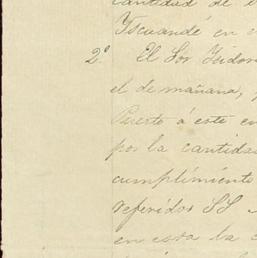 cantidad de
Iscuandé en
2º El Sor Isidoro
el de mañana,
Puerto á este
por la cantidad
cumplimiento
referidos SS
en esta la